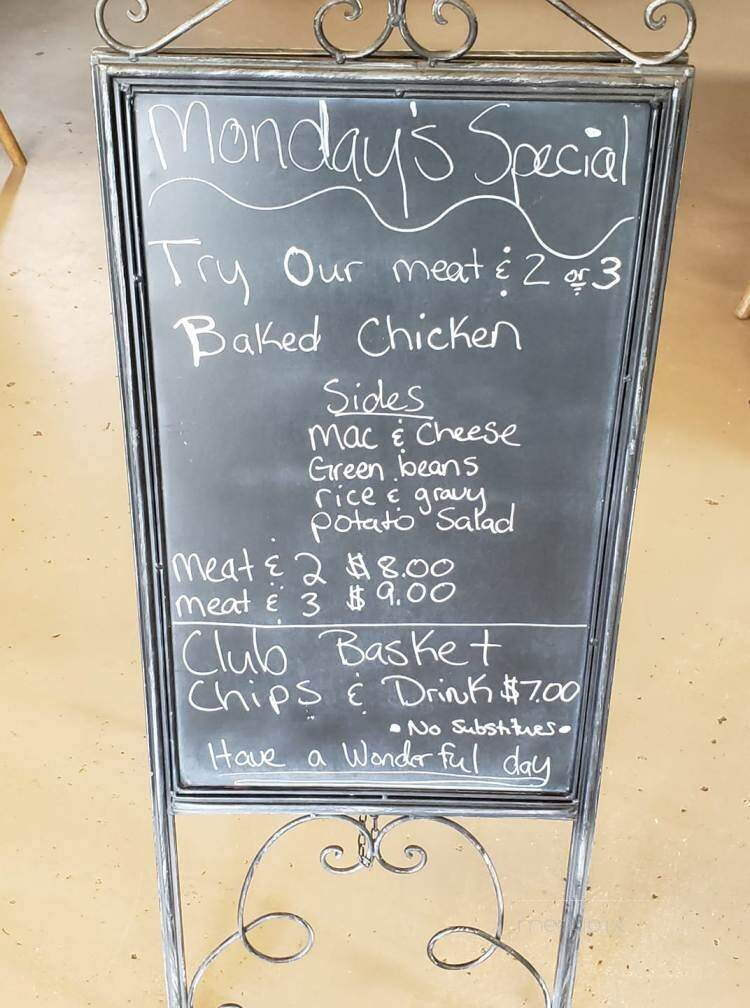 Monday's Special
Try Our meat & 2 or 3
Baked Chicken
Sides
Mac & Cheese
Green beans
rice & gravy
potato Salad
Meat & 2 $8.00
meat & 3 $9.00
Club Basket
Chips & Drink $7.00
• No Substitues •
Have a Wonderful day